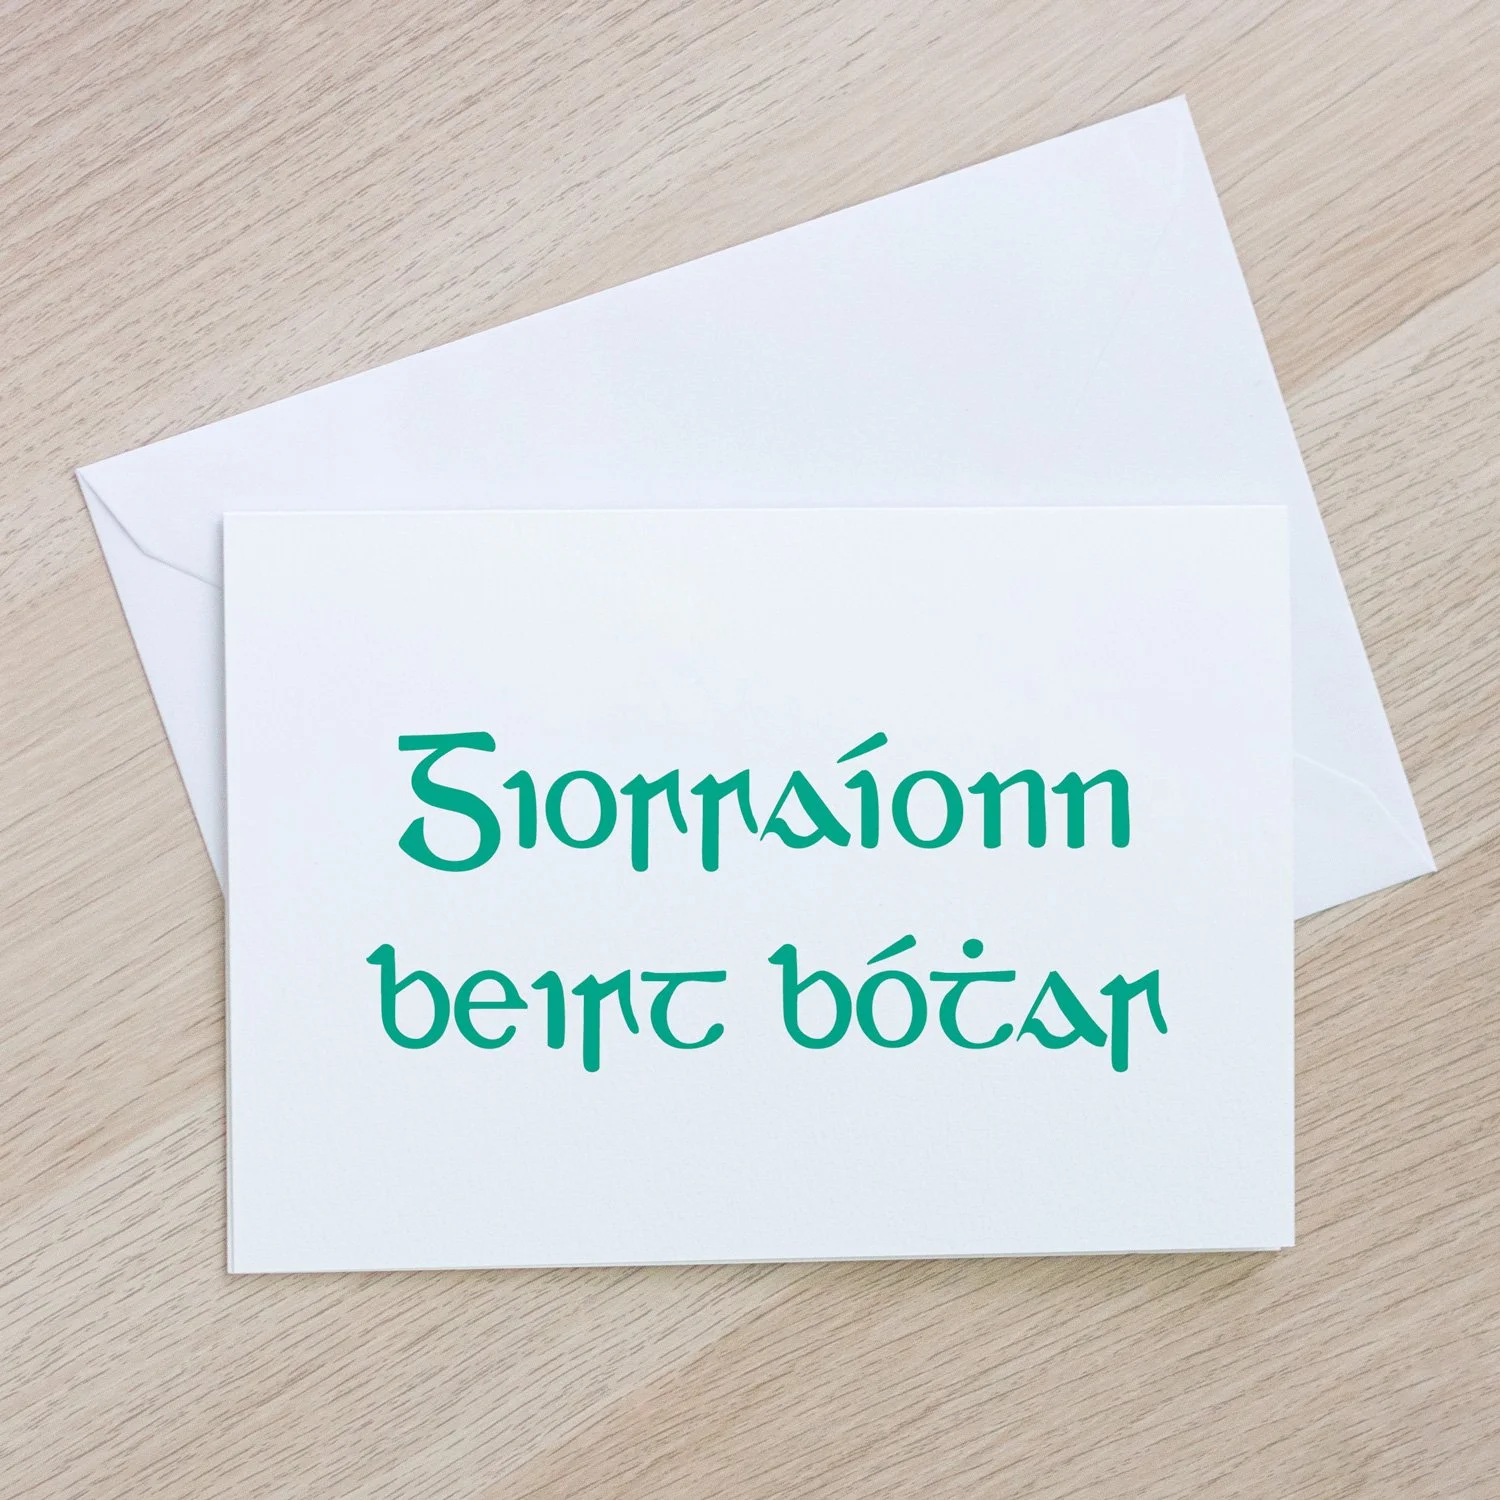 Giorraíonn
beirt bóṫar